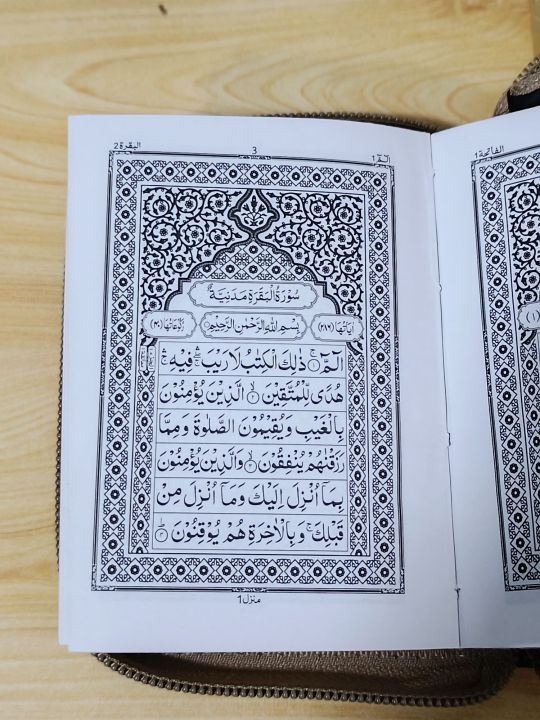 الٓمّٓ 1
3
البقرة 2
سُوْرَةُ الْبَقَرَةِ مَدَنِيَّةٌ
اٰيَاتُهَا (٢٨٦)
بِسْمِ اللّٰهِ الرَّحْمٰنِ الرَّحِيْمِ
رُكُوْعَاتُهَا (۴۰)
الٓمّٓ ۚ ذٰلِكَ الْكِتٰبُ لَا رَيْبَ ۛ فِيْهِ ۛ
هُدًى لِّلْمُتَّقِيْنَ ۙ الَّذِيْنَ يُؤْمِنُوْنَ
بِالْغَيْبِ وَيُقِيْمُوْنَ الصَّلٰوةَ وَمِمَّا
رَزَقْنٰهُمْ يُنْفِقُوْنَ ۙ وَالَّذِيْنَ يُؤْمِنُوْنَ
بِمَاۤ اُنْزِلَ اِلَيْكَ وَمَاۤ اُنْزِلَ مِنْ
قَبْلِكَ ۚ وَبِالْاٰخِرَةِ هُمْ يُوْقِنُوْنَ ؕ
منزل 1
الفاتحة 1
(١)